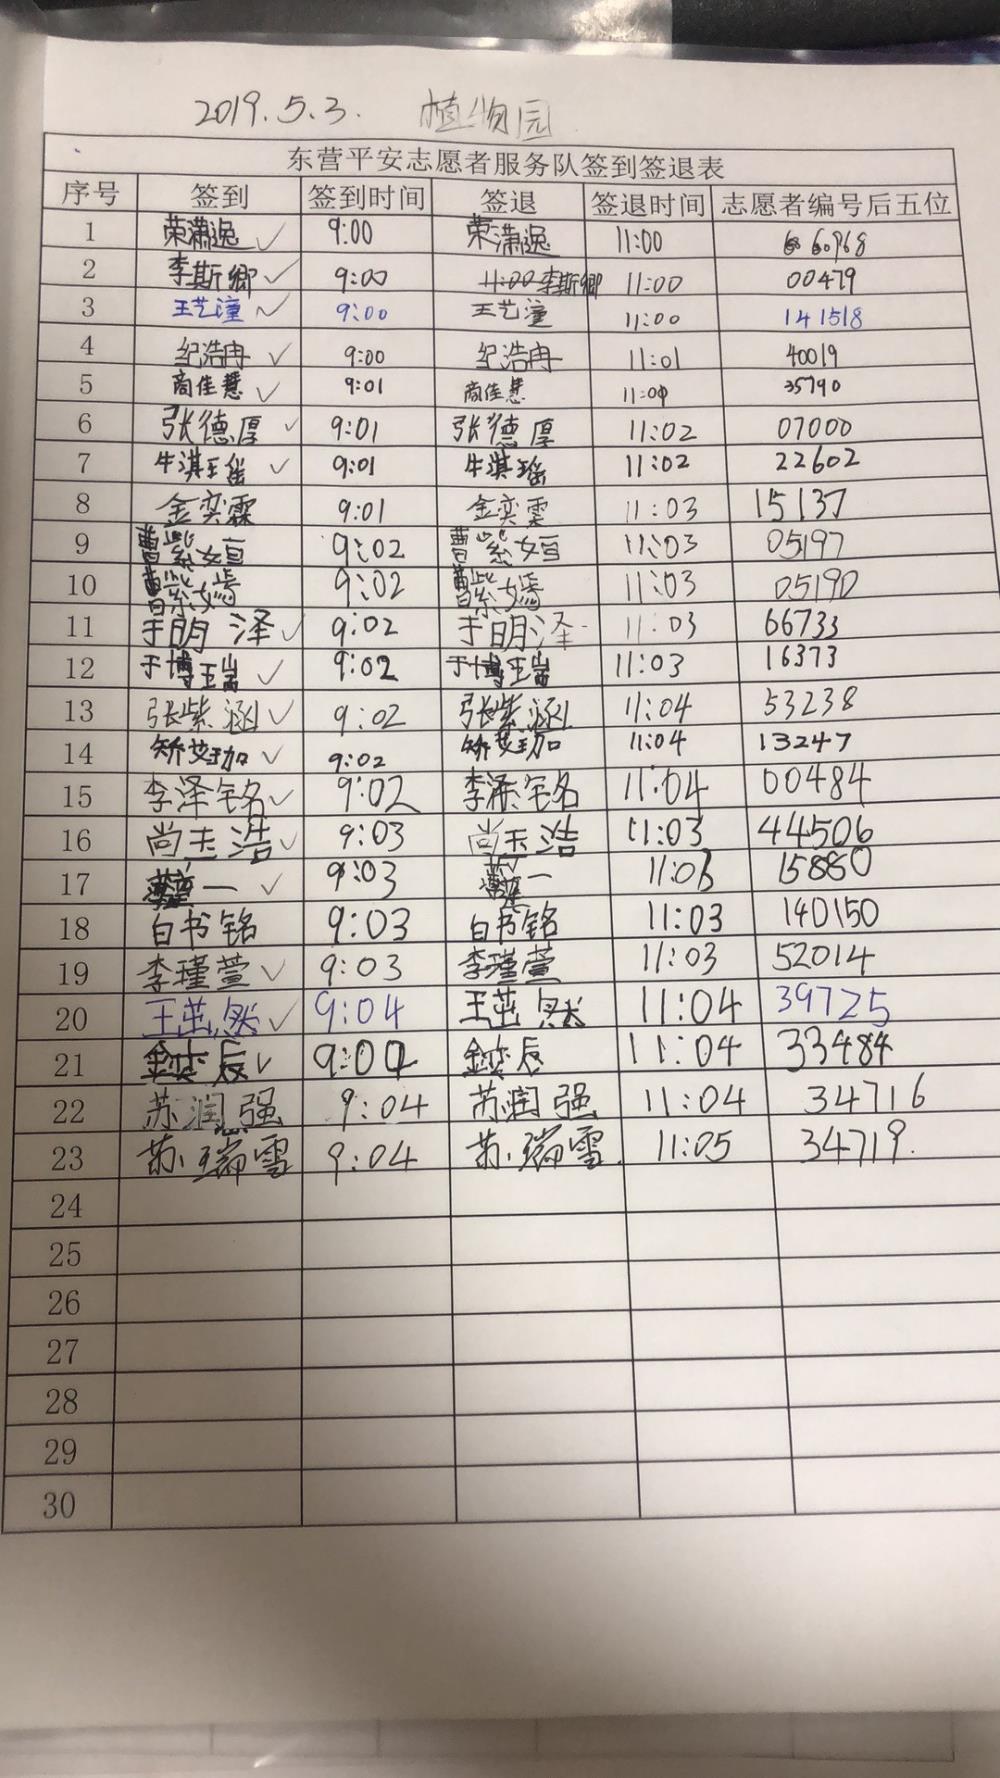 2019.5.3. 植物园
东营平安志愿者服务队签到签退表
序号 签到 签到时间 签退 签退时间 志愿者编号后五位
1 荣潇逸 ✓ 9:00 荣潇逸 11:00 60968
2 李斯卿 ✓ 9:00 李斯卿 11:00 00479
3 王艺潼 ✓ 9:00 王艺潼 11:00 141518
4 纪浩冉 ✓ 9:00 纪浩冉 11:01 40019
5 商佳慧 ✓ 9:01 商佳慧 35790
6 张德厚 ✓ 9:01 张德厚 11:02 07000
7 牛淇瑶 ✓ 9:01 牛淇瑶 11:02 22602
8 金奕霖 9:01 金奕霖 11:03 15137
9 曹紫姮 9:02 曹紫姮 11:03 05197
10 曹紫嫣 9:02 曹紫嫣 11:03 05190
11 于明泽 ✓ 9:02 于明泽 11:03 66733
12 于博瑞 ✓ 9:02 于博瑞 11:03 16373
13 张紫涵 ✓ 9:02 张紫涵 11:04 53238
14 矫艾珈 ✓ 9:02 矫艾珈 11:04 13247
15 李泽铭 ✓ 9:02 李泽铭 11:04 00484
16 尚玉浩 ✓ 9:03 尚玉浩 11:03 44506
17 一 ✓ 9:03 一 11:03 15880
18 白书铭 9:03 白书铭 11:03 140150
19 李瑾萱 ✓ 9:03 李瑾萱 11:03 52014
20 王茁然 ✓ 9:04 王茁然 11:04 39725
21 金奕辰 ✓ 9:04 金奕辰 11:04 33484
22 苏润强 9:04 苏润强 11:04 34716
23 苏瑞雪 9:04 苏瑞雪. 11:05 34719.
24
25
26
27
28
29
30